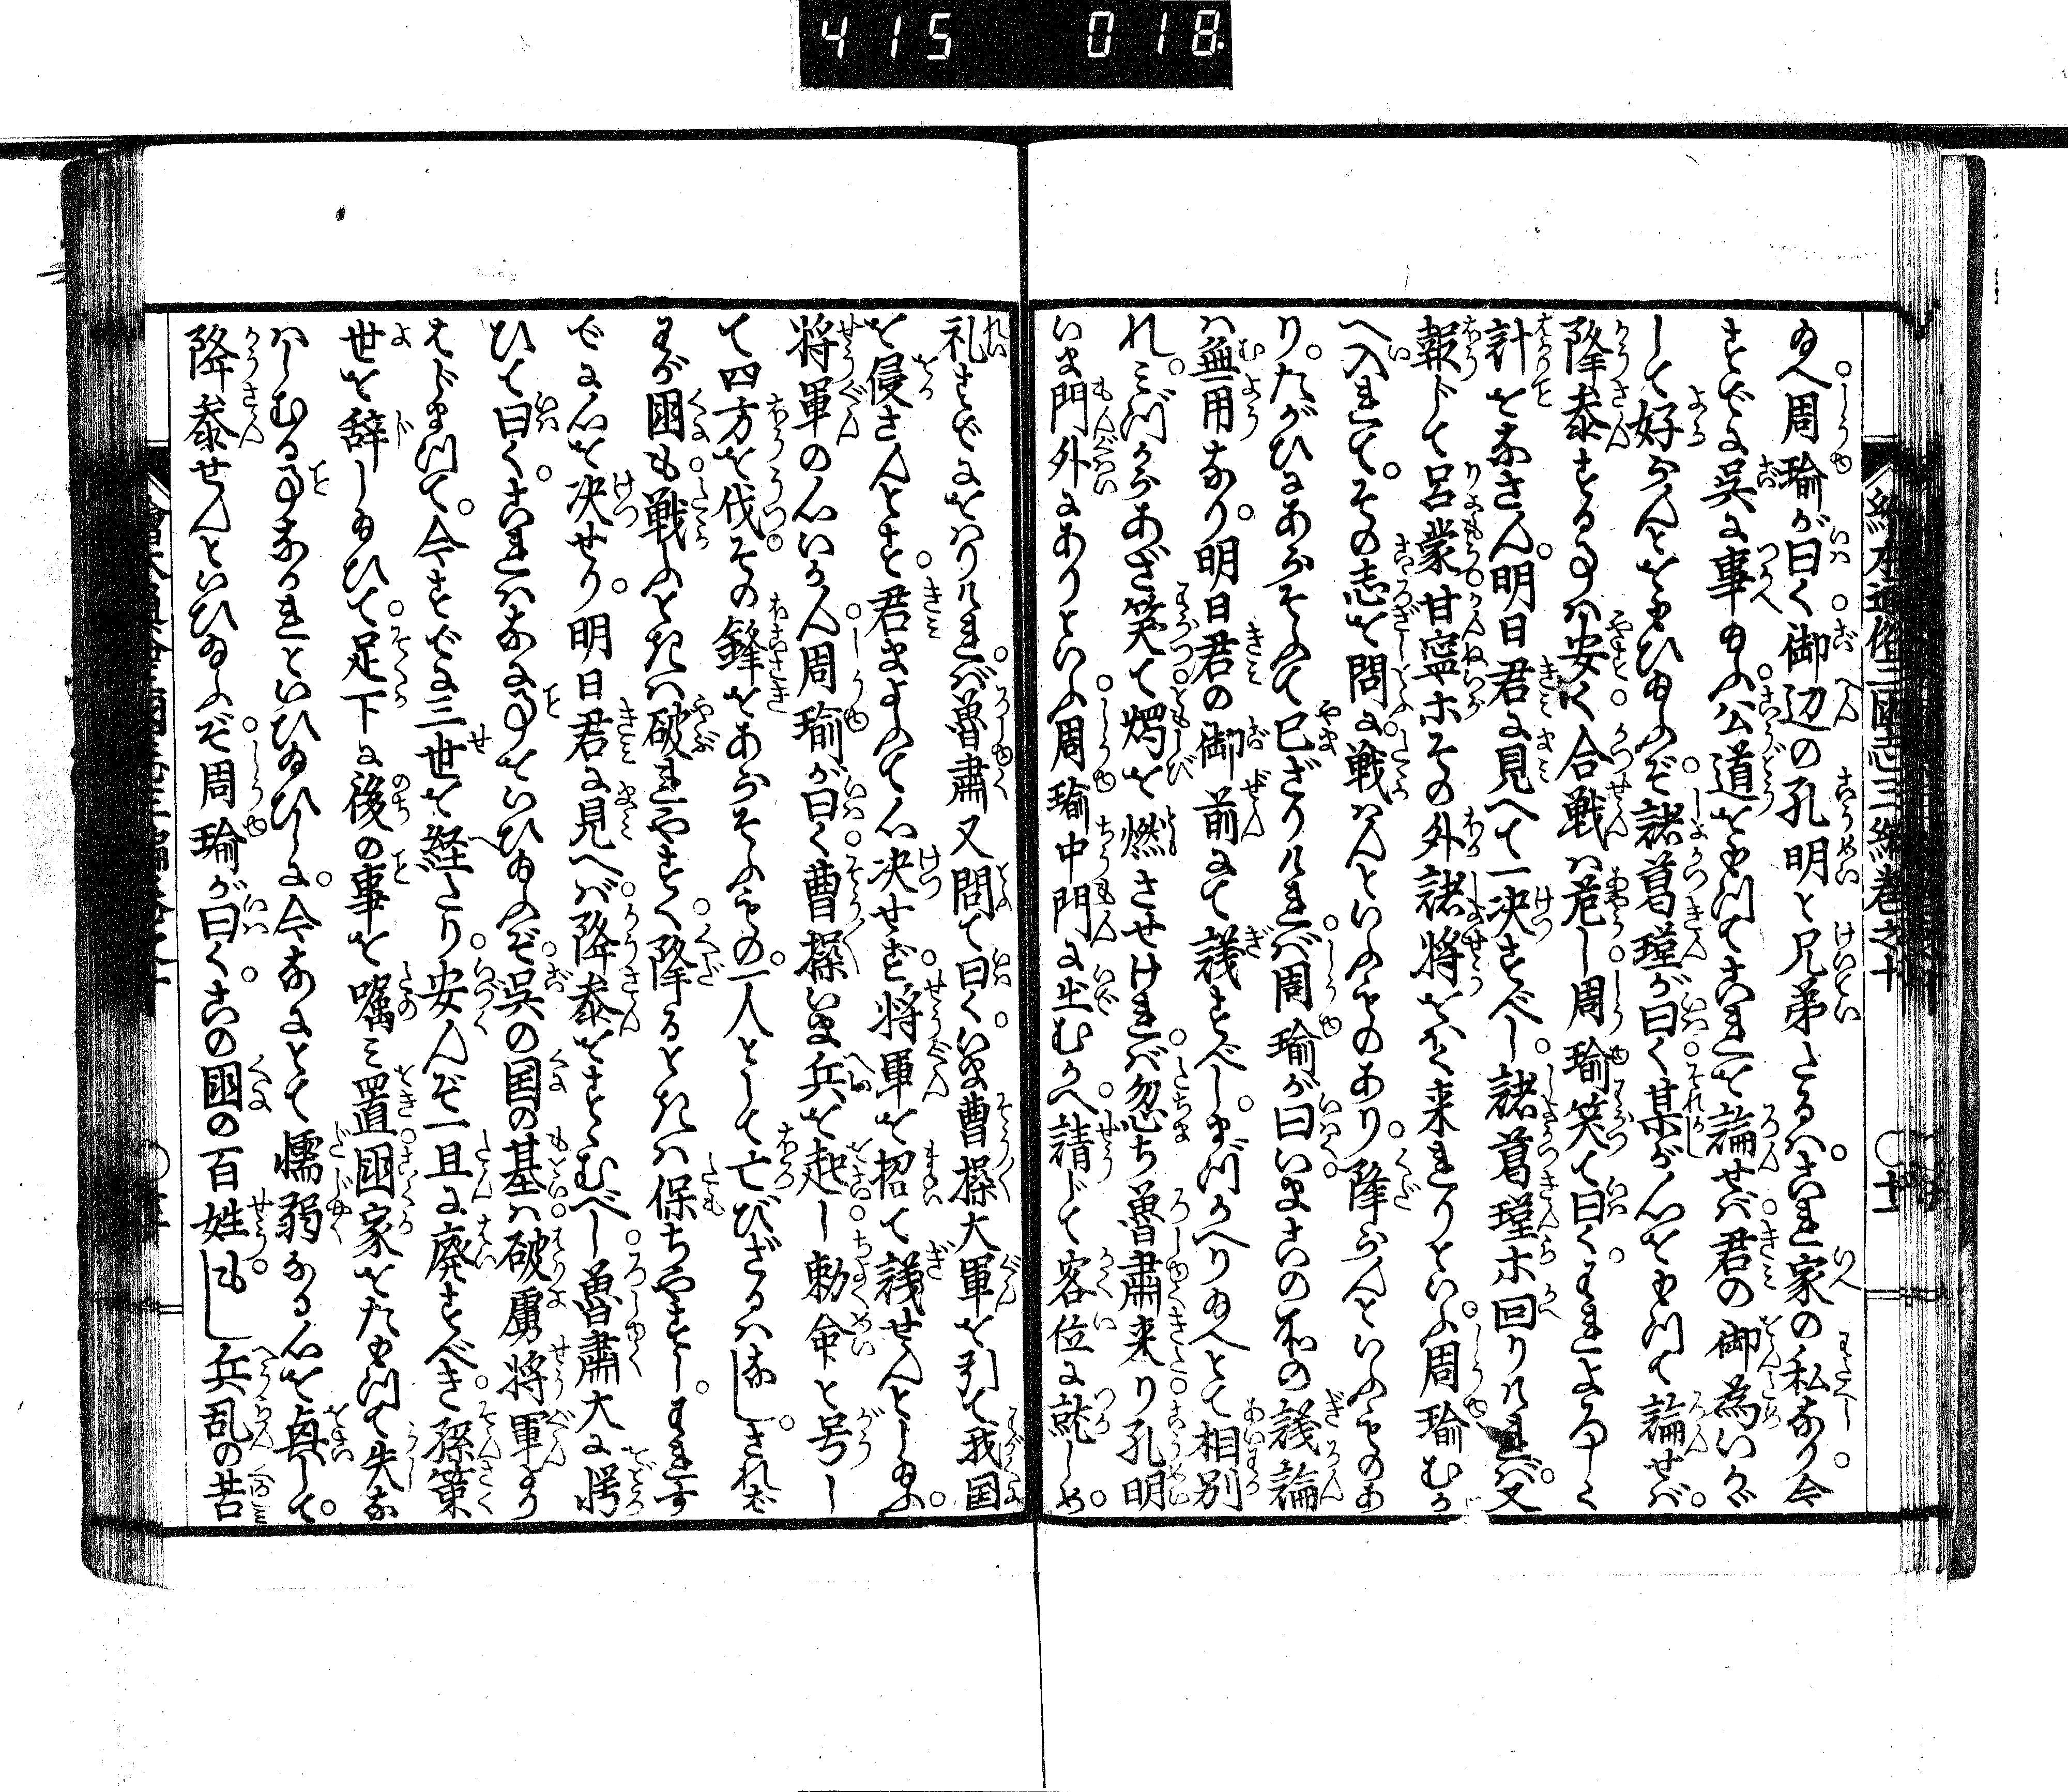 415 018
繪本通俗三国志三編巻之十
十一
給へ周瑜が曰く御辺の孔明と兄弟たるハこれ家の私なり今
すでに呉に事給ふ公道をもつてこれを論せバ君の御為いかゞ
して好らんとをもひ給ふぞ諸葛瑾が曰く某が心をもつて論せバ
降参する事ハ安く合戦ハ危し周瑜笑て曰くわれよろしく
計をなさん明日君に見へて一決すべし諸葛瑾ホ回りけれバ又
報じて呂蒙甘寧ホその外諸将をほく来れりといふ周瑜むか
へ入れてその志を問に戦ハんといふものあり降らんといふものあ
りたがひにあらそふて已ざりけれバ周瑜が曰いまさいの不の議論
ハ無用なり明日君の御前にて議すべしまづかへり給へとて相別
れミづからあざ笑て燭を燃させけれバ忽ち魯粛来り孔明
いま門外にありといふ周瑜中門に出むかへ請じて客位に就しめ
礼すでにをハりけれバ魯粛又問て曰くいま曹操大軍を引て我国
を侵さんとす君まよふて心决せず将軍を招て議せんとし給ふ
将軍の心いかん周瑜が曰く曹操いま兵を起し勅命と号し
て四方を伐その鋒をあらそふもの一人として亡びざるハなしされバ
わが国も戦ふときハ破れやすく降るときハ保ちやすしわれす
でに心を决せり明日君に見へバ降参をすゝむべし魯粛大に愕
ひて曰くこれハなに事をいひ給ふぞ呉の国の基ハ破虜将軍より
はじまつて今すでに三世を経たり安んぞ一旦に廃すべき孫策
世を辞し給ひて足下に後の事を嘱ミ置国家をたもつて失な
ハしむる事なかれといひ給ひしに今なにとて懦弱なる心を具して
降参せんといひ給ふぞ周瑜が曰くこの国の百姓もし兵乱の苦